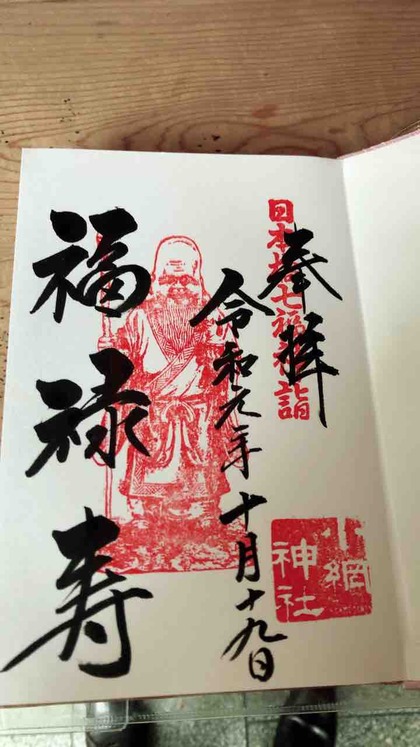 奉拝
日本橋七福神詣
令和元年十月十九日
福禄寿
小網
神社